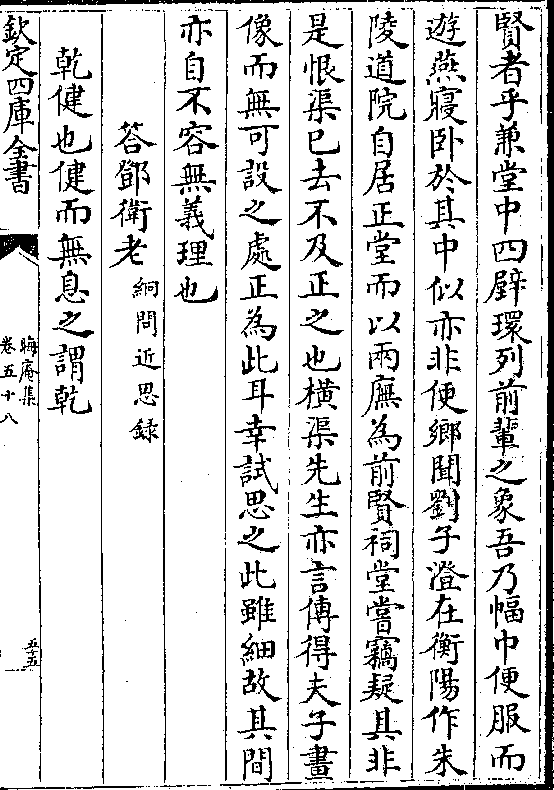 賢者乎兼堂中四壁環列前輩之象吾乃幅巾便服而
遊燕寢卧於其中似亦非便鄉聞劉子澄在衡陽作朱
陵道院自居正堂而以兩廡為前賢祠堂嘗竊疑其非
是恨渠已去不及正之也橫渠先生亦言傳得夫子畫
像而無可設之處正為此耳幸試思之此雖細故其間
亦自不容無義理也
答鄧衛老絅問近思録
乾健也健而無息之謂乾
欽定四庫全書
晦庵集
卷五十八
五五